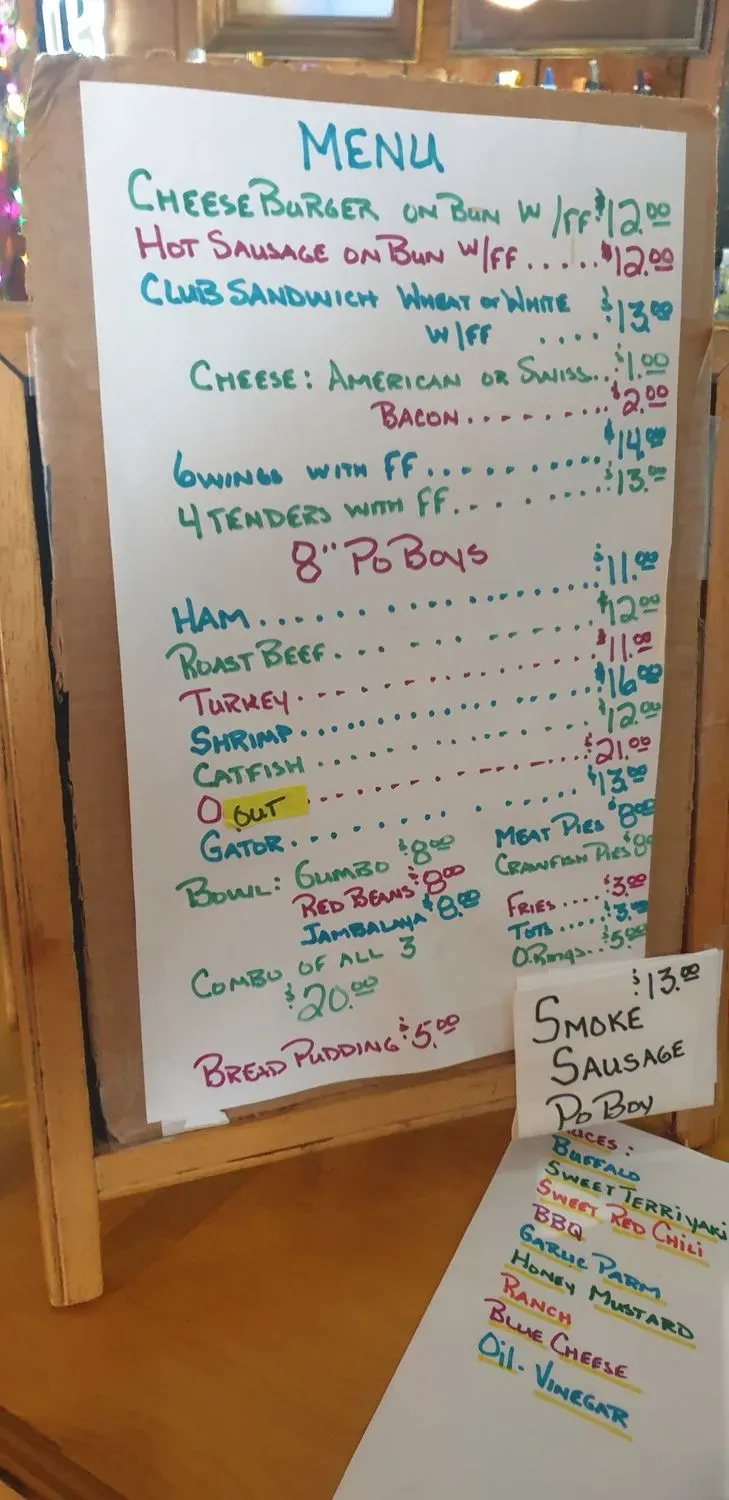 MENU
CHEESEBURGER ON BUN W/FF $12.00
HOT SAUSAGE ON BUN W/FF.....$12.00
CLUB SANDWICH WHEAT or WHITE
W/FF .... $13.00
CHEESE: AMERICAN OR SWISS..$1.00
BACON........$2.00
6 WINGS WITH FF..........$14.00
4 TENDERS WITH FF.......$13.00
8" PO BOYS
HAM...............$11.00
ROAST BEEF............$12.00
TURKEY...............$11.00
SHRIMP...............$16.00
CATFISH..............$12.00
O OUT ...............$21.00
GATOR..........$13.00
BOWL: GUMBO $8.00
RED BEANS $8.00
JAMBALAYA $8.00
COMBO OF ALL 3
$20.00
BREAD PUDDING $5.00
MEAT PIES $8.00
CRAWFISH PIES $8
FRIES....$3.00
TOTS.....$3.00
O.RINGS..$5.00
$13.00
SMOKE
SAUSAGE
PO BOY
UCES:
BUFFALO
SWEET TERRIYAKI
SWEET RED CHILI
BBQ
GARLIC PARM
HONEY MUSTARD
RANCH
BLUE CHEESE
OIL - VINEGAR